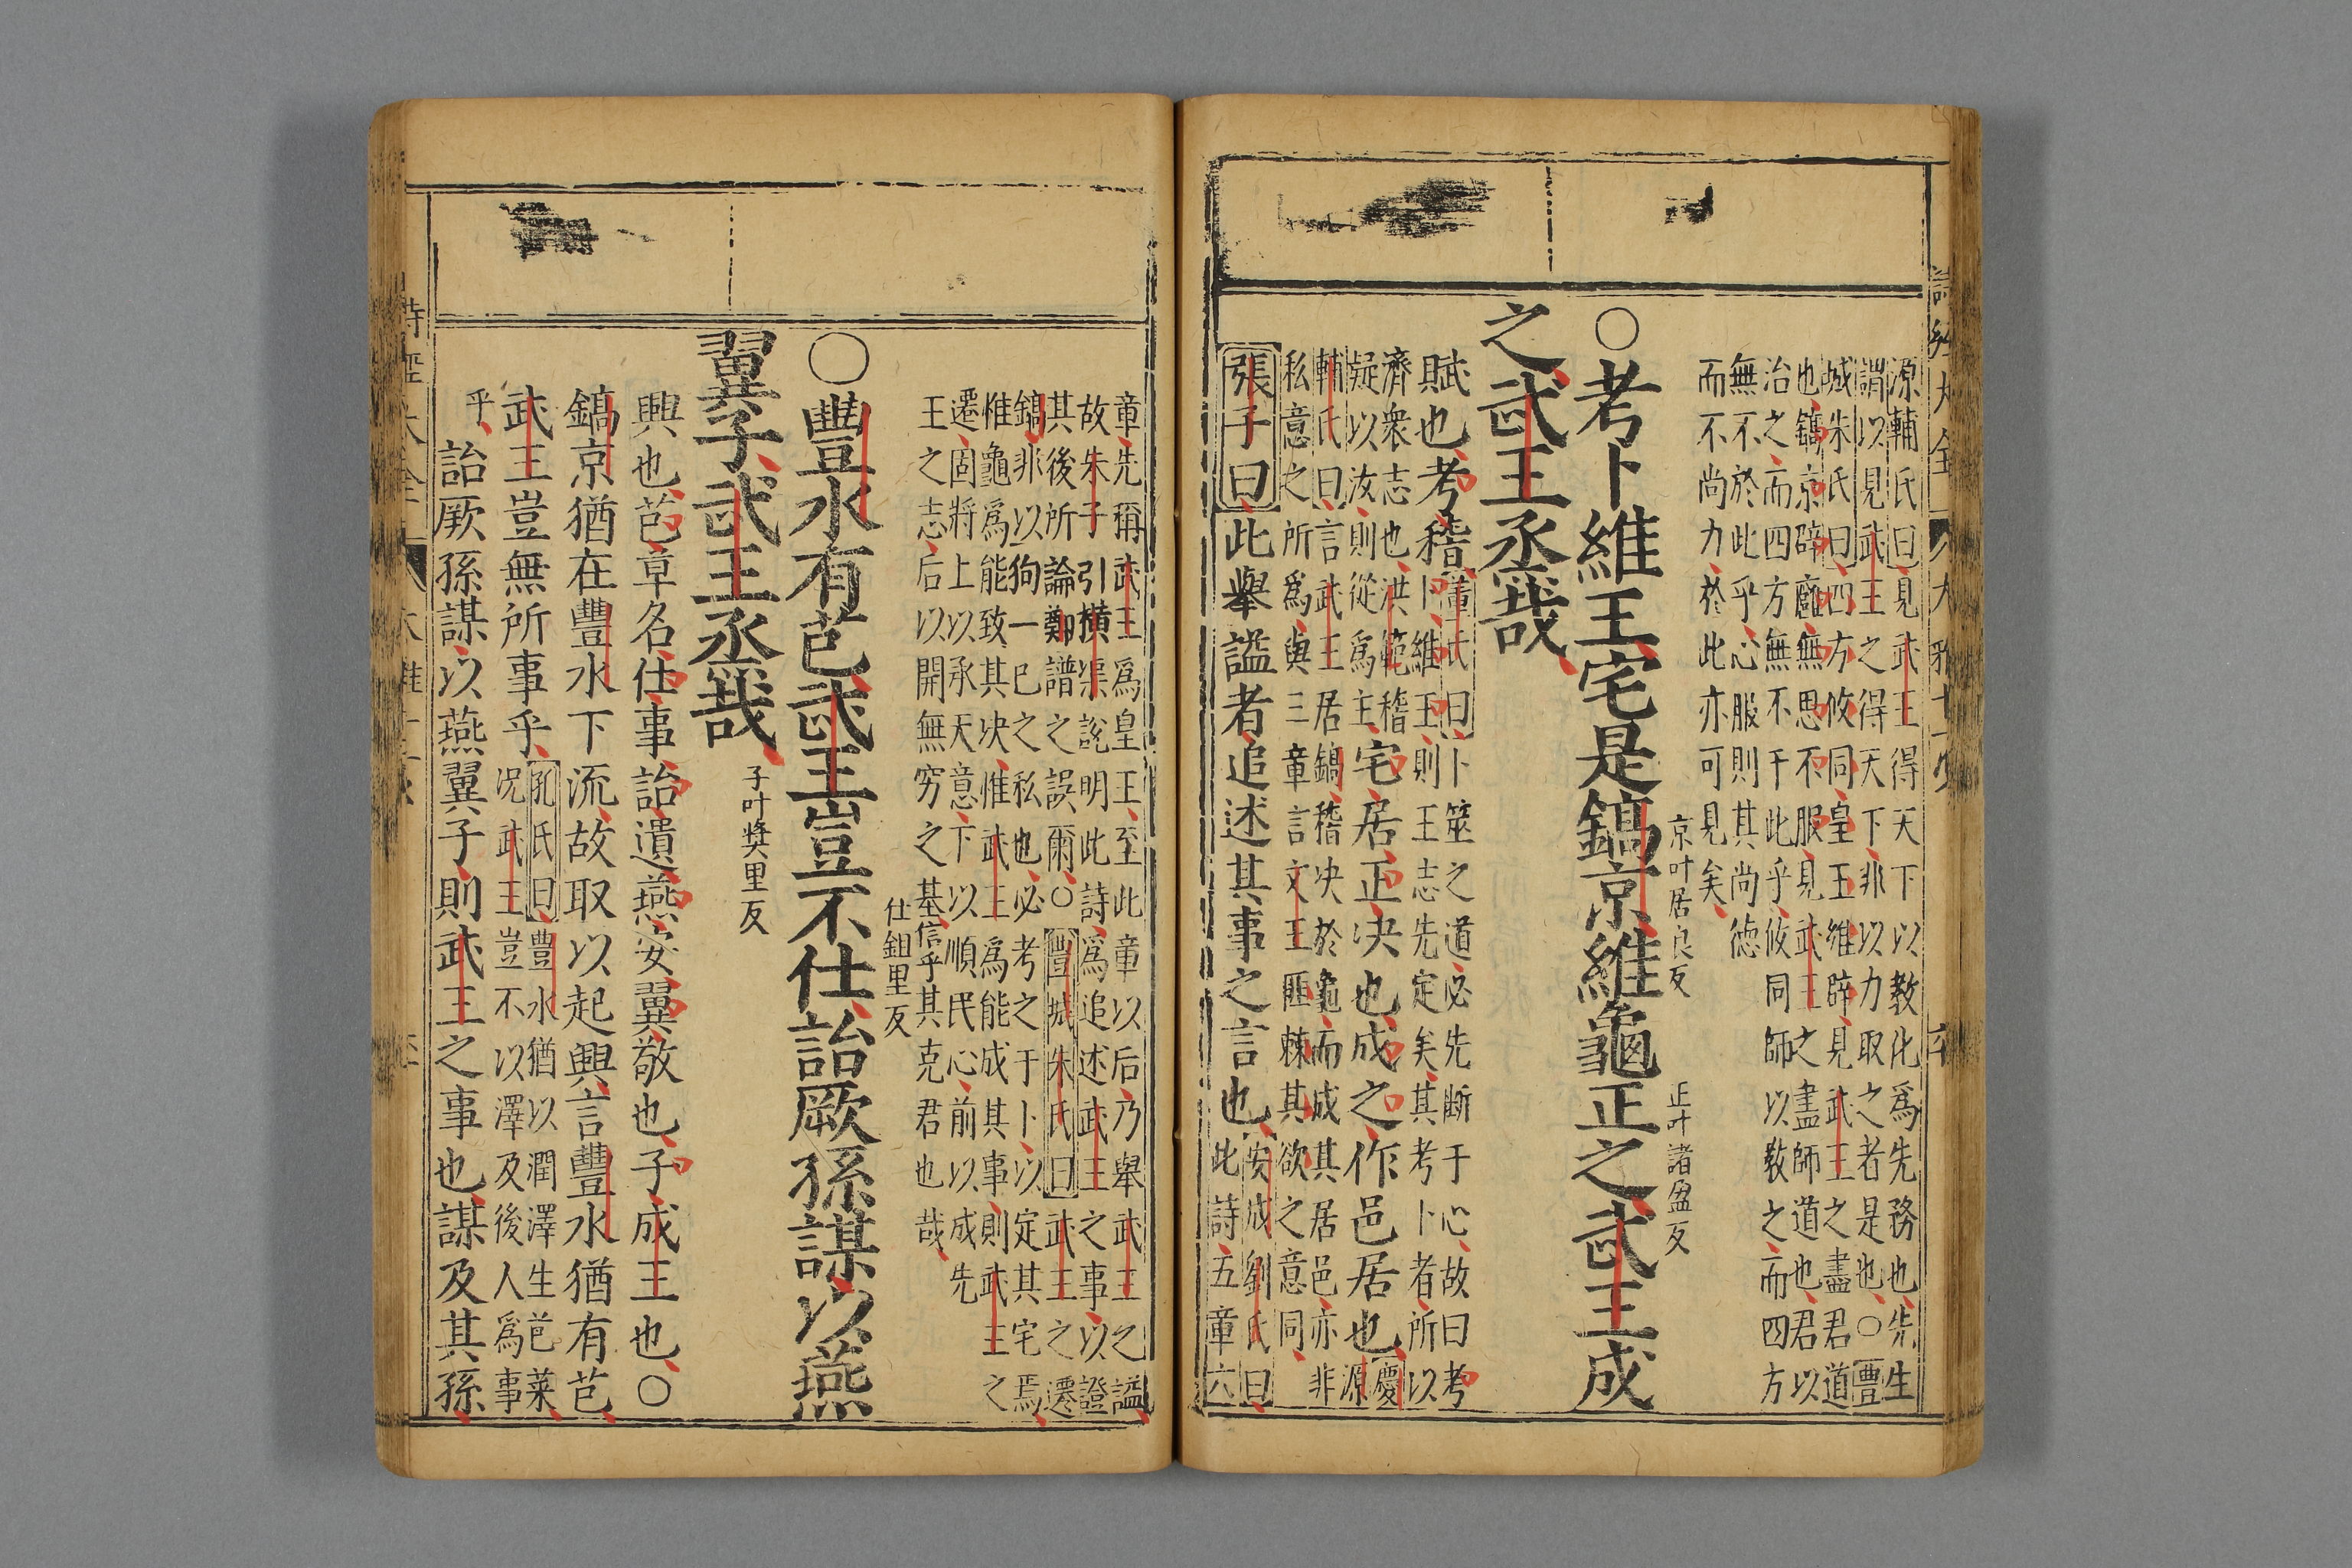 源輔氏曰見武王得天下以教化爲先務也先生
謂以見武王之得天下非以力取之者是也○豊
城朱氏曰四方攸同皇王維辟見武王之盡君道
也鎬京辟廱無思不服見武王之盡師道也君以
治之而四方無不于此乎攸同師以教之而四方
無不於此乎心服則其尚德
而不尚力於此亦可見矣
○考卜維王宅是鎬京維龜正之武王成
京叶居良反
正叶諸盈反
之武王烝哉
賦也考稽
董氏曰卜筮之道必先斷于心故曰考
卜維王則王志先定矣其考卜者所以
濟衆志也洪範稽
疑以汝則從爲主
宅居正決也成之作邑居也
慶
源
輔氏曰言武王居鎬稽决於龜而成其居邑亦非
私意之所爲與三章言文王匪棘其欲之意同
張子曰此舉謚者追述其事之言也
安成劉氏曰
此詩五章六
章先稱武王爲皇王至此章以后乃舉武王之謚
故朱子引橫渠說明此詩爲追述武王之事以證
其後所論鄭譜之誤爾○豐城朱氏曰武王之遷
鎬非以狥一已之私也必考之于卜以定其宅焉
惟龜爲能致其决惟武王爲能成其事則武王之
遷固將上以承天意下以順民心前以成先
王之志后以開無穷之基信乎其克君也哉
○豐水有芑武王豈不仕詒厥孫謀以燕
仕鉏里反
翼子武王烝哉
子叶獎里反
興也芑草名仕事詒遺燕安翼敬也子成王也○
鎬京猶在豐水下流故取以起興言豐水猶有芑
武王豈無所事乎
孔氏曰豐水猶以潤澤生芑菜
况武王豈不以澤及後人爲事
乎
詒厥孫謀以燕翼子則武王之事也謀及其孫